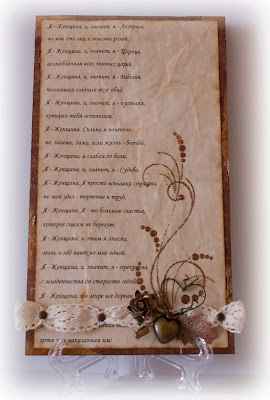 Я - Женщина, и, значит, я - Актриса,
во мне сто лиц и тысяча ролей.
Я - Женщина, и, значит, я - Царица,
возлюбленная всех земных царей.
Я - Женщина, и, значит, я - Рабыня,
познавшая солёный вкус обид.
Я - Женщина, и, значит, я - пустыня,
которая тебя испепелит.
Я - Женщина. Сильна я поневоле,
но, знаешь, даже, если жизнь - борьба,
Я - Женщина, я слабая до боли,
Я - Женщина, и, значит, я - Судьба.
Я - Женщина. Я просто вспышка страсти,
но мой удел - терпение и труд,
Я - Женщина. Я - то большое счастье,
которое совсем не берегут.
Я - Женщина, и этим я опасна,
огонь и лёд навек во мне одной.
Я - Женщина, и, значит, я - прекрасна
с младенчества до старости седой.
Я - Женщина, и в мире все дороги